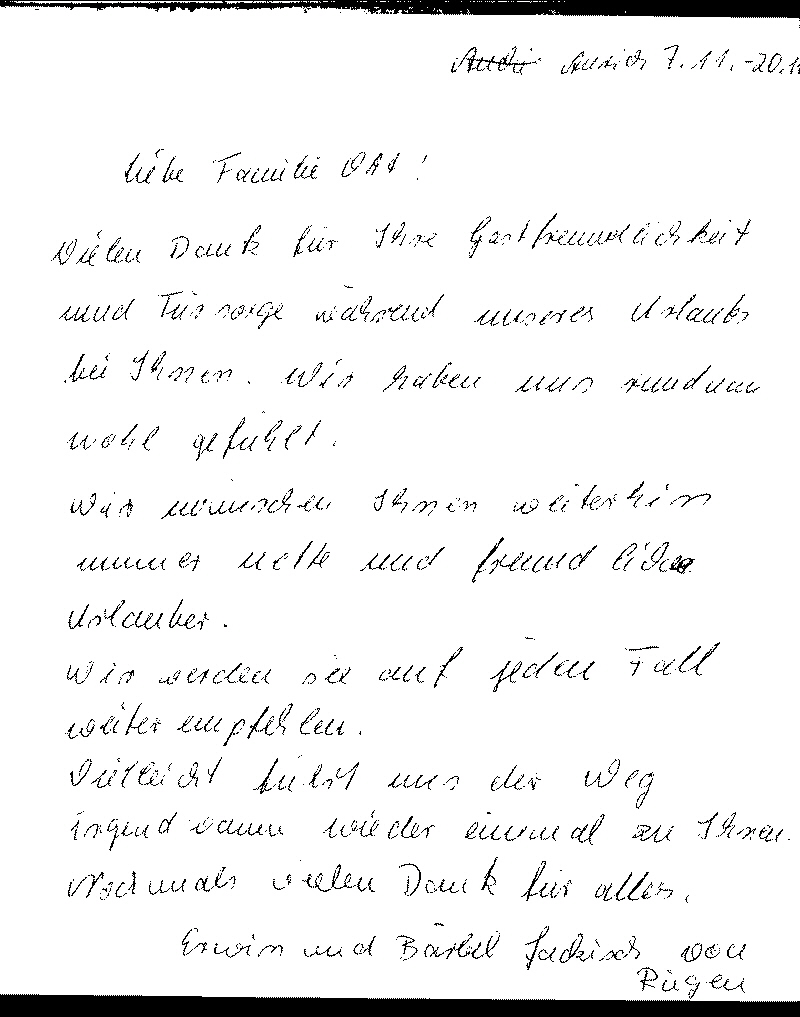 Aurich 7.11.-20.11
Liebe Familie Ott!
Vielen Dank für Ihre Gastfreundlichkeit
und Fürsorge während unseres Urlaubs
bei Ihnen. Wir haben uns rundum
wohl gefühlt.
Wir wünschen Ihnen weiterhin
immer nette und freundliche
Urlauber.
Wir werden sie auf jeden Fall
weiterempfehlen.
Vielleicht führt uns der Weg
irgendwann wieder einmal zu Ihnen.
Nochmals vielen Dank für alles.
Erwin und Bärbel Jackisch von
Rügen